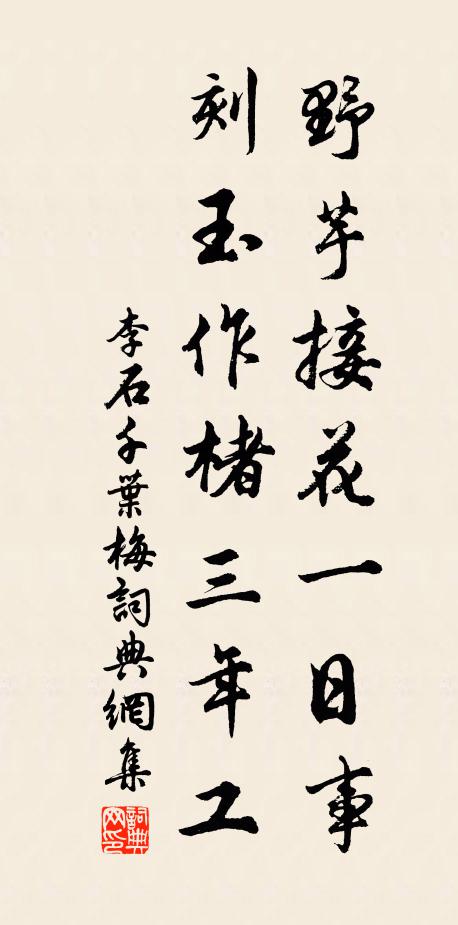 野芋接花一日事
刻玉作楮三年工
李石千葉梅詞典網集
詞典网印